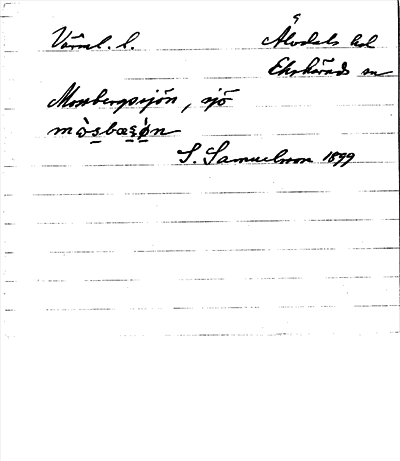 Värml. l.
Älvdals hd
Ekshärads sn
Mossbergssjön, sjö
mòs̲bæs̲ø̲n
S. Samuelsson 1899